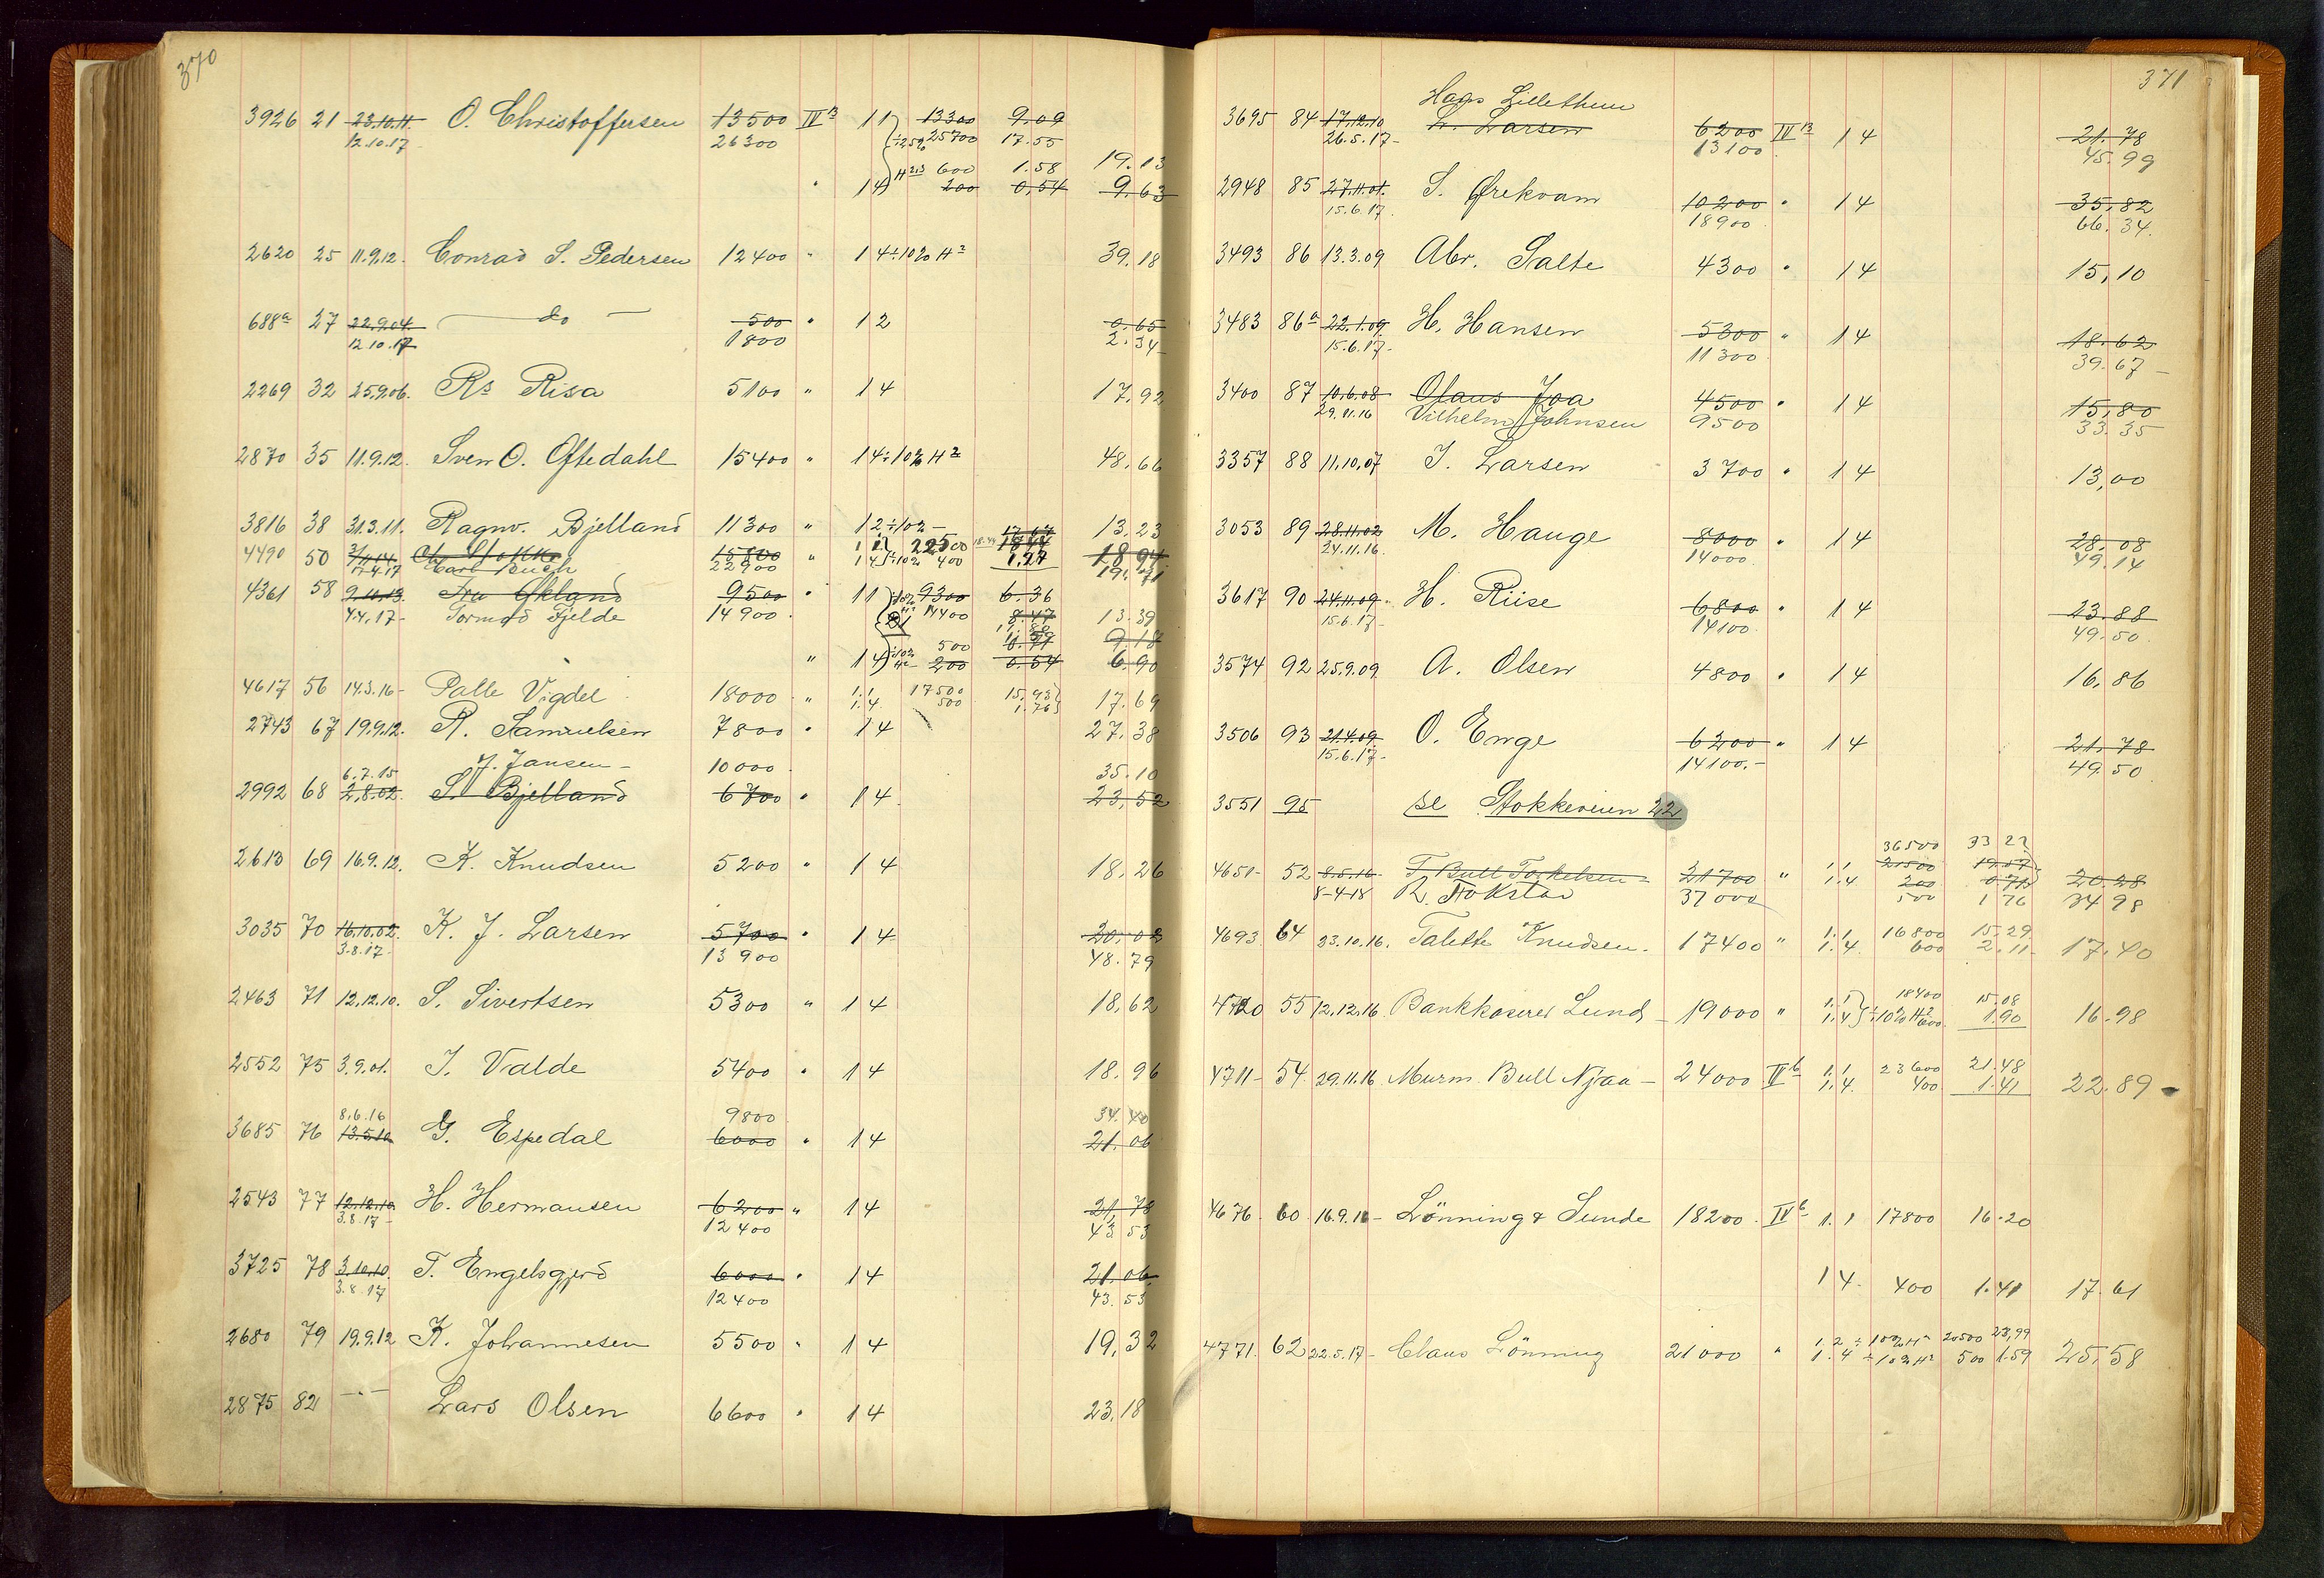 370
3926 21 23.10.11. O. Christoffersen 13500 IV B 11 13300 9.09
12.10.17 26300 ÷25% 25700 17.55
600 1.58 19.13
" 14 200 0,54 9.63
2620 25 11.9.12. Conrad S. Pedersen 12400 " 14 ÷10% H² 39.18
688a 27 22.9.04. — do — 500 " 12 0.65
12.10.17 1800 2.34
2269 32 25.9.06. Rs Risa 5100 " 14 17,92
2870 35 11.9.12. Sven O. Oftedahl 15400 " 14 ÷10% H² 48,66
3816 38 31.3.11. Ragnv. Bjelland 11300 " 12 ÷10% 13,23
4490 50 15800 " 11 22500 18 94
17.4.17 22900 14 ÷10% 400 1.27 19.71
4361 58 9.10.13. Fru Økland 9500 " 11 ÷10% 9300 6.36
4.4.17- Tormod Fjelde 14900 14400 8.47 13.39
500 9,18
" 14 ÷10% H² 200 0.54 6.90
4617 56 14.3.16- Palle Vigdel 18000 " 1.1 17500 15.93
1.4. 500 1.76 17.69
2743 67 19.9.12. R. Samuelsen 7800 " 14 27,38
6.7.15 J. Jansen - 10000 35.10
2992 68 2,8.02. S. Bjelland 6700 " 14 23,52
2613 69 16.9.12. K. Knudsen 5200 " 14 18,26
3035 70 16.10.02. K. J. Larsen 5700 " 14 20,02
3.8.17- 13900 48.79
2463 71 12.12.10. S. Sivertsen 5300 " 14 18,62
2552 75 3.9.01. I. Valde 5400 " 14 18,96
8,6.16 9800 34.40
3685 76 13.5.10 G. Espedal 6000 " 14 21.06
2543 77 12.12.10. H. Hermansen 6200 " 14 21,78
3.8.17- 12400 43.53
3725 78 3.10.10. T. Engelsgjerd 6000 " 14 21.06
3.8.17 12400 43.53
2680 79 19.9.12 K. Johannesen 5500 " 14 19,32
2875 82 — " — Lars Olsen 6600 " 14 23,18
371
Hans Lillethun
3695 84 17.12.10 L. Larsen 6200 IV B 14 21.78
26.5.17- 13100 45.99
2948 85 27.11.01. S. Ørekvam 10200 " 14 35,82
15.6.17. 18900 66.34.
3493 86 13.3.09 Abr. Salte 4300 " 14 15,10
3483 86a 22.1.09. H. Hansen 5300 " 14 18.62
15.6.17- 11300 39.67
3400 87 10.6.08 Olaus Joa 4500 " 14 15,80
29.11.16 Vilhelm Johnsen 9500 33.35
3357 88 11.10.07 I. Larsen 3700 " 14 13,00
3053 89 28.11.02 M. Hauge 8000 " 14 28,08
24.11.16. 14000. 49.14
3617 90 24.11.09. H. Riise 6800 " 14 23.88
15.6.17- 14100. 49.50
3574 92 25.9.09 A. Olsen 4800 " 14 16,86
3506 93 21.4.09. O. Enge 6200 " 14 21,78
15.6.17- 14100.- 49.50
3551 95 se Stokkeveien 22
36500 33 22
4651- 52 8.5.16- T. Bull Torkelsen - 21700 " 1.1 21500 19.57
8-4-18 R. Stokstad 37000 1.4 200 0.71 20.28
500 1 76 34 98
4693 64 23.10.16. Talette Knudsen. 17400 " 1.1 16800 15.29
1.4. 600 2.11 17.40
4720 55 12.12.16. Bankkaserer Lund - 19000 " 1.1 18400 15.08
1.4 ÷10% H² 600. 1.90 16.98
4711- 54. 29.11.16 Murm. Bull Njaa - 24000 II b 1.1 23600 21.48
1.4. 400 1.41 22.89
4676. 60. 16.9.16- Lönning & Sunde 18200. IV b 1.1 17800 16.20
1 4. 400 1.41 17.61
4771. 62 22.5.17- Claus Lönning 21000 " 1.2 ÷10% H² 20500 23,99
1.4 ÷10% H² 500 1.59 25,58